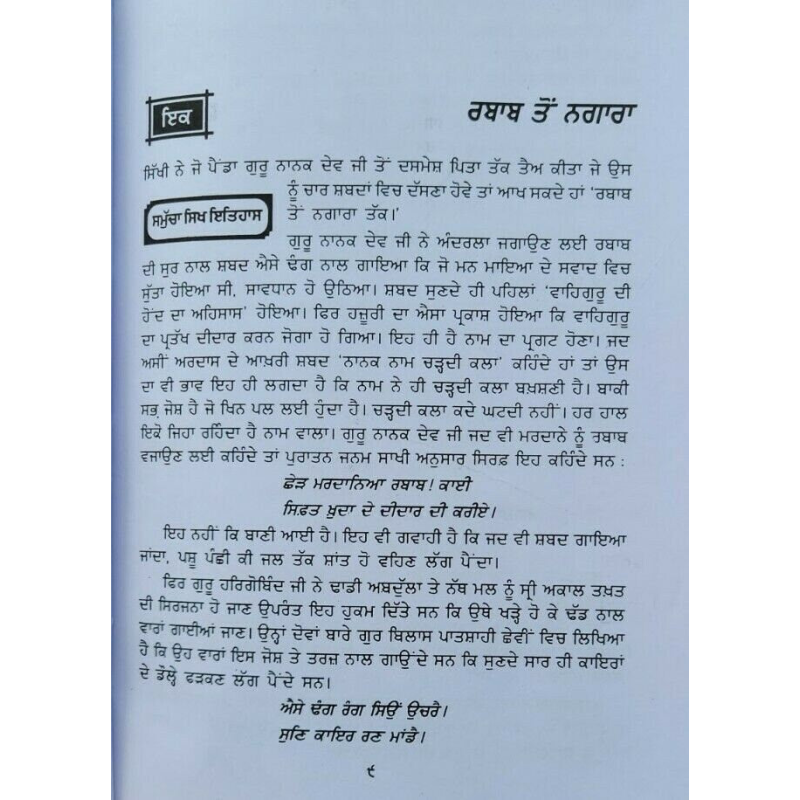 ਇਕ
ਰਬਾਬ ਤੋਂ ਨਗਾਰਾ
ਸਿੱਖੀ ਨੇ ਜੋ ਪੈਂਡਾ ਗੁਰੂ ਨਾਨਕ ਦੇਵ ਜੀ ਤੋਂ ਦਸਮੇਸ਼ ਪਿਤਾ ਤੱਕ ਤੈਅ ਕੀਤਾ ਜੇ ਉਸ
ਨੂੰ ਚਾਰ ਸ਼ਬਦਾਂ ਵਿਚ ਦੱਸਣਾ ਹੋਵੇ ਤਾਂ ਆਖ ਸਕਦੇ ਹਾਂ ‘ਰਬਾਬ
ਸਮੁੱਚਾ ਸਿਖ ਇਤਿਹਾਸ
ਤੋਂ ਨਗਾਰਾ ਤੱਕ।’
ਗੁਰੂ ਨਾਨਕ ਦੇਵ ਜੀ ਨੇ ਅੰਦਰਲਾ ਜਗਾਉਣ ਲਈ ਰਬਾਬ
ਦੀ ਸੁਰ ਨਾਲ ਸ਼ਬਦ ਐਸੇ ਢੰਗ ਨਾਲ ਗਾਇਆ ਕਿ ਜੋ ਮਨ ਮਾਇਆ ਦੇ ਸਵਾਦ ਵਿਚ
ਸੁੱਤਾ ਹੋਇਆ ਸੀ, ਸਾਵਧਾਨ ਹੋ ਉਠਿਆ। ਸ਼ਬਦ ਸੁਣਦੇ ਹੀ ਪਹਿਲਾਂ ‘ਵਾਹਿਗੁਰੂ ਦੀ
ਹੋਂਦ ਦਾ ਅਹਿਸਾਸ’ ਹੋਇਆ। ਫਿਰ ਹਜ਼ੂਰੀ ਦਾ ਐਸਾ ਪ੍ਰਕਾਸ਼ ਹੋਇਆ ਕਿ ਵਾਹਿਗੁਰੂ
ਦਾ ਪ੍ਰਤੱਖ ਦੀਦਾਰ ਕਰਨ ਜੋਗਾ ਹੋ ਗਿਆ। ਇਹ ਹੀ ਹੈ ਨਾਮ ਦਾ ਪ੍ਰਗਟ ਹੋਣਾ। ਜਦ
ਅਸੀਂ ਅਰਦਾਸ ਦੇ ਆਖ਼ਰੀ ਸ਼ਬਦ ‘ਨਾਨਕ ਨਾਮ ਚੜ੍ਹਦੀ ਕਲਾ’ ਕਹਿੰਦੇ ਹਾਂ ਤਾਂ ਉਸ
ਦਾ ਵੀ ਭਾਵ ਇਹ ਹੀ ਲਗਦਾ ਹੈ ਕਿ ਨਾਮ ਨੇ ਹੀ ਚੜ੍ਹਦੀ ਕਲਾ ਬਖ਼ਸ਼ਣੀ ਹੈ। ਬਾਕੀ
ਸਭ ਜੋਸ਼ ਹੈ ਜੋ ਖਿਨ ਪਲ ਲਈ ਹੁੰਦਾ ਹੈ। ਚੜ੍ਹਦੀ ਕਲਾ ਕਦੇ ਘਟਦੀ ਨਹੀਂ। ਹਰ ਹਾਲ
ਇਕੋ ਜਿਹਾ ਰਹਿੰਦਾ ਹੈ ਨਾਮ ਵਾਲਾ। ਗੁਰੂ ਨਾਨਕ ਦੇਵ ਜੀ ਜਦ ਵੀ ਮਰਦਾਨੇ ਨੂੰ ਰਬਾਬ
ਵਜਾਉਣ ਲਈ ਕਹਿੰਦੇ ਤਾਂ ਪੁਰਾਤਨ ਜਨਮ ਸਾਖੀ ਅਨੁਸਾਰ ਸਿਰਫ਼ ਇਹ ਕਹਿੰਦੇ ਸਨ :
ਛੇੜ ਮਰਦਾਨਿਆ ਰਬਾਬ! ਕਾਈ
ਸਿਫ਼ਤ ਖ਼ੁਦਾ ਦੇ ਦੀਦਾਰ ਦੀ ਕਰੀਏ।
ਇਹ ਨਹੀਂ ਕਿ ਬਾਣੀ ਆਈ ਹੈ। ਇਹ ਵੀ ਗਵਾਹੀ ਹੈ ਕਿ ਜਦ ਵੀ ਸ਼ਬਦ ਗਾਇਆ
ਜਾਂਦਾ, ਪਸ਼ੂ ਪੰਛੀ ਕੀ ਜਲ ਤੱਕ ਸ਼ਾਂਤ ਹੋ ਵਹਿਣ ਲੱਗ ਪੈਂਦਾ।
ਫਿਰ ਗੁਰੂ ਹਰਿਗੋਬਿੰਦ ਜੀ ਨੇ ਢਾਡੀ ਅਬਦੁੱਲਾ ਤੇ ਨੱਥ ਮਲ ਨੂੰ ਸ੍ਰੀ ਅਕਾਲ ਤਖ਼ਤ
ਦੀ ਸਿਰਜਨਾ ਹੋ ਜਾਣ ਉਪਰੰਤ ਇਹ ਹੁਕਮ ਦਿੱਤੇ ਸਨ ਕਿ ਉਥੇ ਖੜ੍ਹੇ ਹੋ ਕੇ ਢੱਡ ਨਾਲ
ਵਾਰਾਂ ਗਾਈਆਂ ਜਾਣ। ਉਨ੍ਹਾਂ ਦੋਵਾਂ ਬਾਰੇ ਗੁਰ ਬਿਲਾਸ ਪਾਤਸ਼ਾਹੀ ਛੇਵੀਂ ਵਿਚ ਲਿਖਿਆ
ਹੈ ਕਿ ਉਹ ਵਾਰਾਂ ਇਸ ਜੋਸ਼ ਤੇ ਤਰਜ਼ ਨਾਲ ਗਾਉਂਦੇ ਸਨ ਕਿ ਸੁਣਦੇ ਸਾਰ ਹੀ ਕਾਇਰਾਂ
ਦੇ ਡੌਲ੍ਹੇ ਫੜਕਣ ਲੱਗ ਪੈਂਦੇ ਸਨ।
ਐਸੇ ਢੰਗ ਰੰਗ ਸਿਉਂ ਉਚਰੈ।
ਸੁਣਿ ਕਾਇਰ ਰਣ ਮਾਂਡੈ।
੯